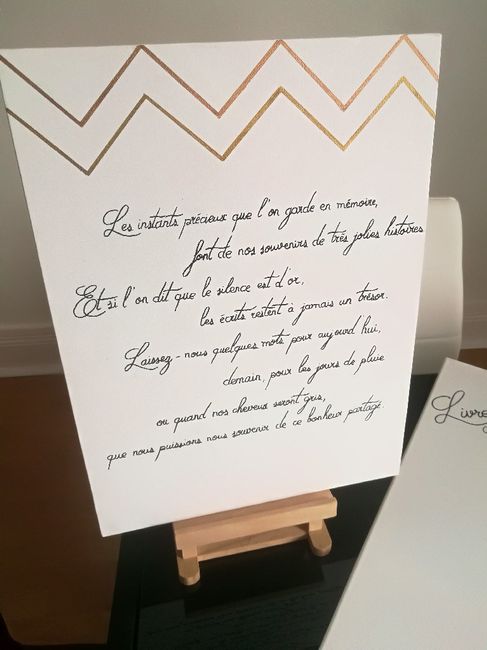 Les instants précieux que l'on garde en mémoire,
font de nos souvenirs de très jolies histoires
Et si l'on dit que le silence est d'or,
les écrits restent à jamais un trésor.
Laissez-nous quelques mots pour aujourd'hui,
demain, pour les jours de pluie
ou quand nos cheveux seront gris,
que nous puissions nous souvenir de ce bonheur partagé.
Livre